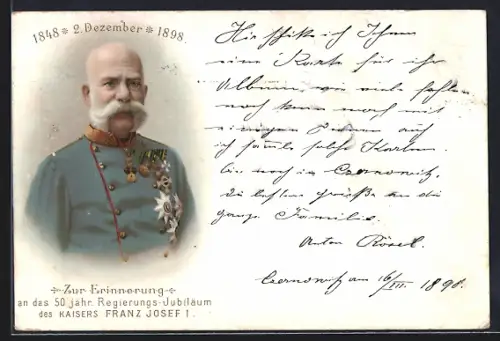 1848 ✻ 2. Dezember ✻ 1898.
Hier schike ich Ihnen
eine Karte für ihr
Album, wie viele fehlen
noch
einigen auf
ich samle solche Karten.
bin noch in Czernowitz,
die besten Grüße an die
ganze Familie.
Anton
Czernowitz am 16/III. 1898.
Zur Erinnerung
an das 50 jähr. Regierungs-Jubiläum
des KAISERS FRANZ JOSEF I.